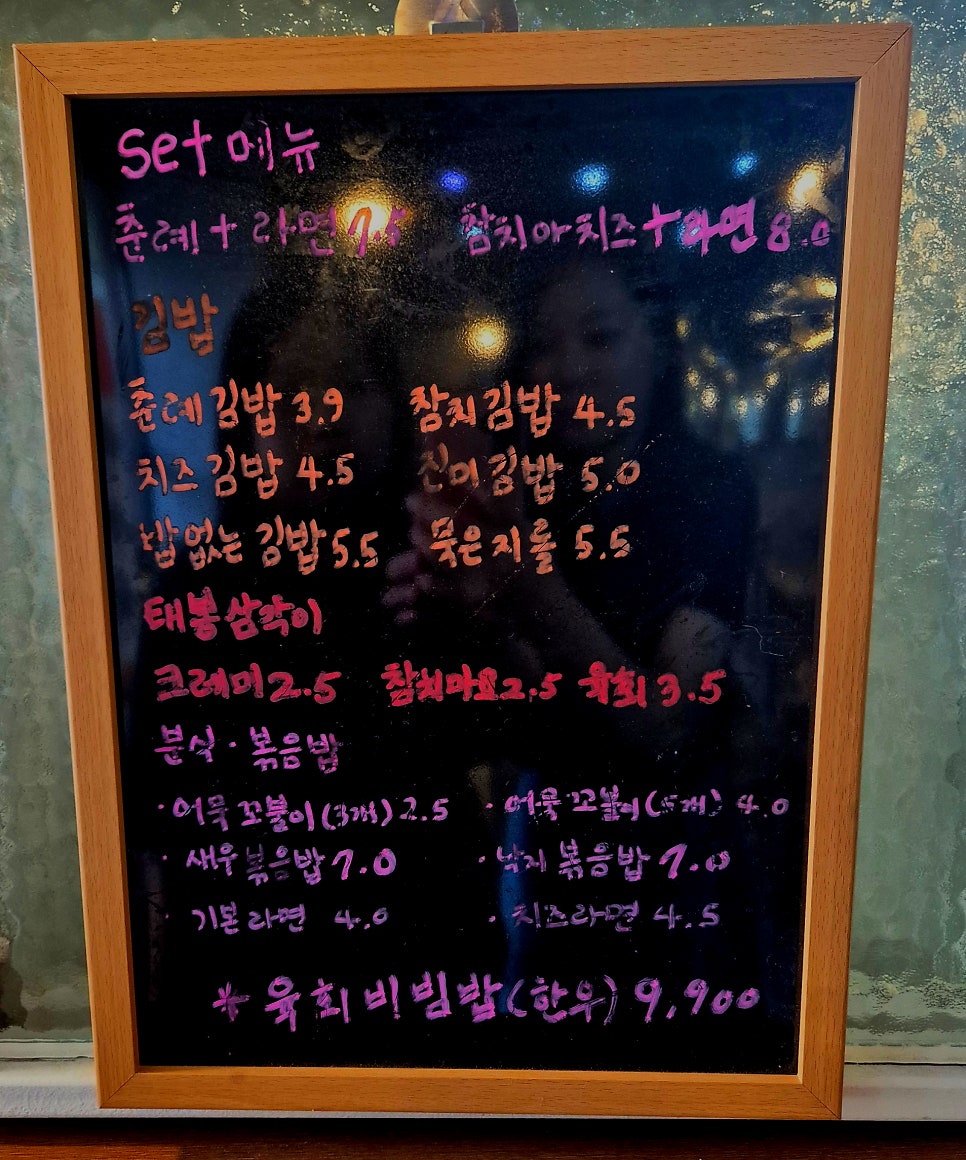 set 메뉴
춘례 + 라면 7.5 참치아치즈 + 라면 8.0
김밥
춘례김밥 3.9 참치김밥 4.5
치즈김밥 4.5 진미김밥 5.0
밥없는 김밥 5.5 묵은지롤 5.5
태봉삼각이
크레미 2.5 참치마요 2.5 육회 3.5
분식 · 볶음밥
· 어묵꼬불이(3개) 2.5 · 어묵꼬불이(5개) 4.0
· 새우볶음밥 7.0 · 낙지볶음밥 7.0
· 기본라면 4.0 · 치즈라면 4.5
* 육회비빔밥(한우) 9,900